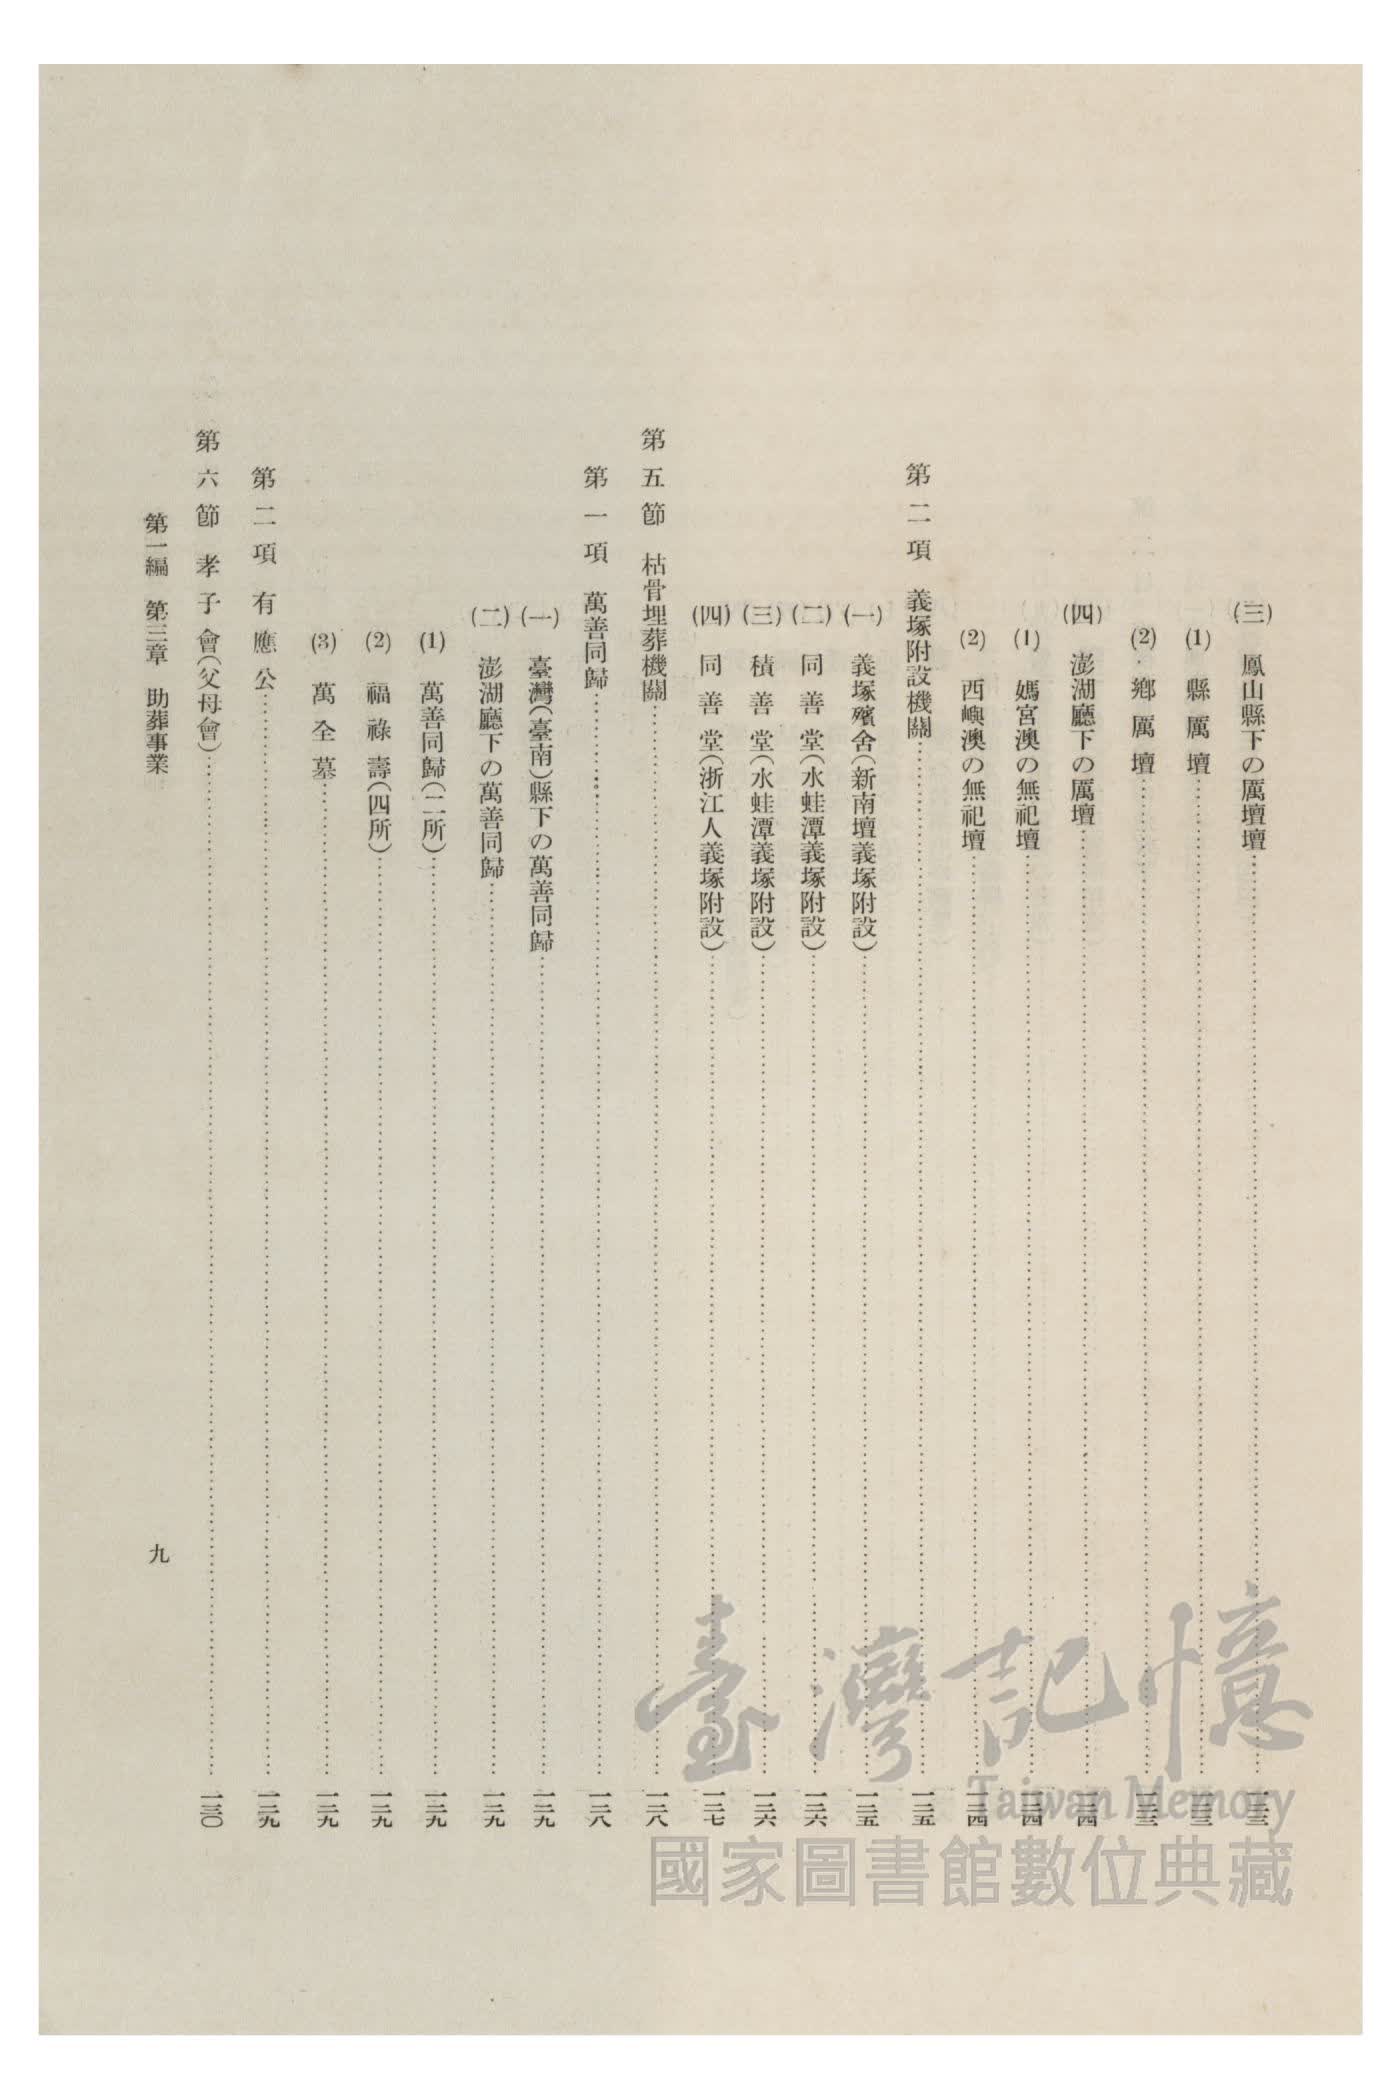 (三) 鳳山縣下の厲壇壇……一二三
(1) 縣厲壇……一二三
(2) 鄕厲壇……一二三
(四) 澎湖廳下の厲壇……一二四
(1) 媽宮澳の無祀壇……一二四
(2) 西嶼澳の無祀壇……一二四
第二項 義塚附設機關……一二五
(一) 義塚殯舍(新南壇義塚附設)……一二五
(二) 同善堂(水蛙潭義塚附設)……一二六
(三) 積善堂(水蛙潭義塚附設)……一二六
(四) 同善堂(浙江人義塚附設)……一二七
第五節 枯骨埋葬機關……一二八
第一項 萬善同歸……一二八
(一) 臺灣(臺南)縣下の萬善同歸……一二九
(二) 澎湖廳下の萬善同歸……一二九
(1) 萬善同歸(二所)……一二九
(2) 福祿壽(四所)……一二九
(3) 萬全墓……一二九
第二項 有應公……一二九
第六節 孝子會(父母會)……一三〇
第一編 第三章 助葬事業
九
臺灣記憶
Taiwan Memory
國家圖書館數位典藏